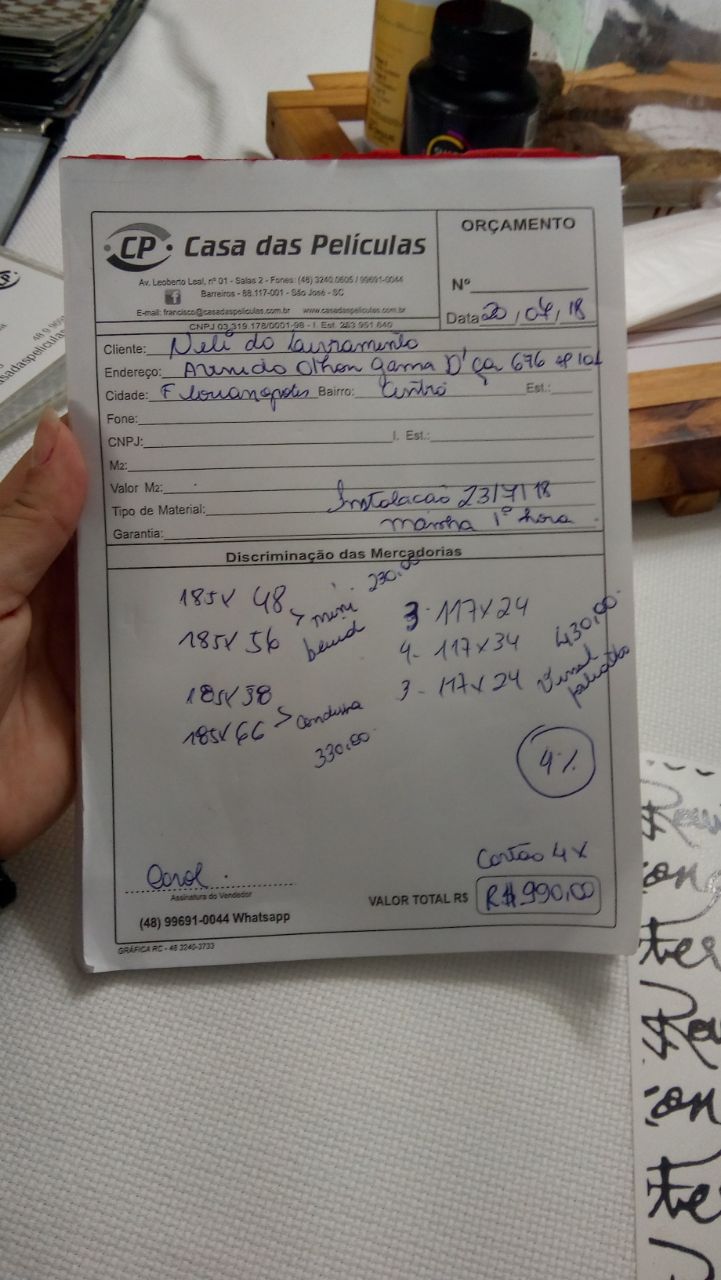 CP Casa das Películas
Av. Leoberto Leal, nº 01 - Salas 2 - Fones: (48) 3240.0605 / 99691-0044
Barreiros - 88.117-001 - São José - SC
E-mail: francisco@casadaspeliculas.com.br www.casadaspeliculas.com.br
CNPJ 03.319.178/0001-98 - I. Est. 253.951.640
ORÇAMENTO
Nº
Data 20/07/18
Cliente: Neli do
Endereço: Avenida Othon Gama D'Eça 676 ap 101
Cidade: Florianopolis Bairro: Centro Est.:
Fone:
CNPJ: I. Est.:
M2:
Valor M2:
Tipo de Material: Instalacão 23/7/18
Garantia: manha 1º hora
Discriminação das Mercadorias
185x 48
185x 56 > mini 230,00
185x 38
185x 66 > 330,00
3- 117x24
4- 117x34
3- 117x24 430,00
4%
Cartão 4x
VALOR TOTAL R$ R$ 990,00
Carol
Assinatura do Vendedor
(48) 99691-0044 Whatsapp
GRÁFICA RC - 48 3240-3733